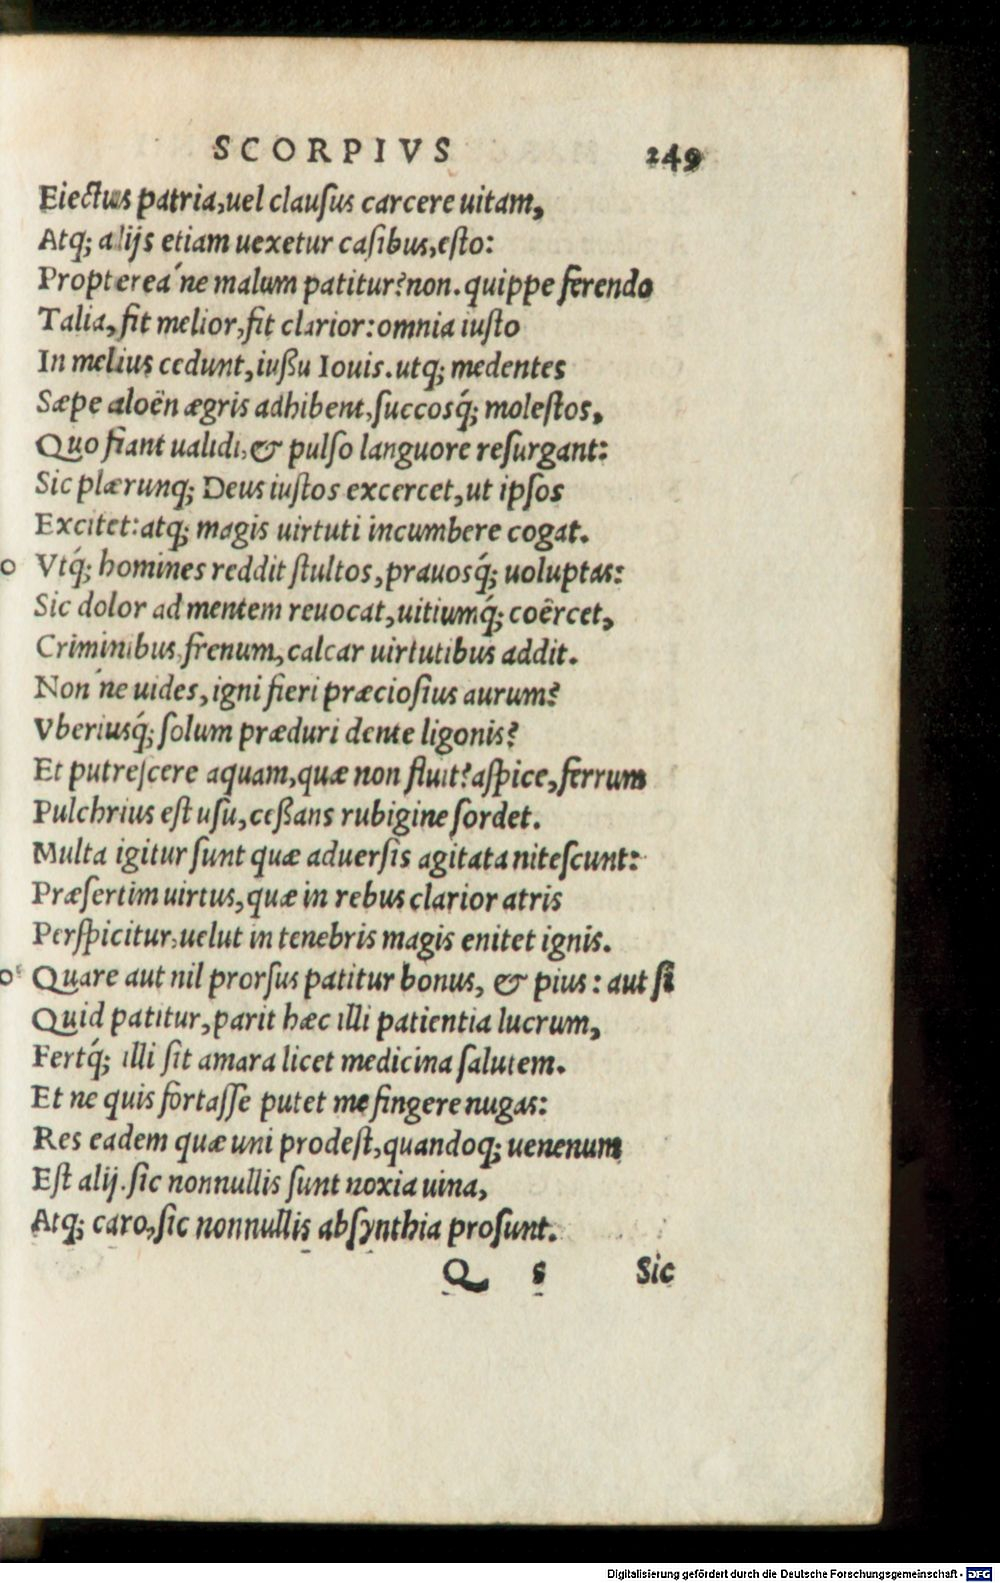 SCORPIVS 249
Eiectus patria, uel clausus carcere uitam,
Atq; alijs etiam uexetur casibus, esto:
Proptereá ne malum patitur? non. quippe ferendo
Talia, fit melior, fit clarior: omnia iusto
In melius cedunt, iussu Iouis. utq; medentes
Sæpe aloën ægris adhibent, succosq́; molestos,
Quo fiant ualidi, & pulso languore resurgant:
Sic plærunq; Deus iustos excercet, ut ipsos
Excitet: atq; magis uirtuti incumbere cogat.
o Vtq́; homines reddit stultos, prauosq́; uoluptas:
Sic dolor ad mentem reuocat, uitiumq́; coërcet,
Criminibus frenum, calcar uirtutibus addit.
Non ne uides, igni fieri præciosius aurum?
Vberiusq́; solum præduri dente ligonis?
Et putrescere aquam, quæ non fluit? aspice, ferrum
Pulchrius est usu, cessans rubigine sordet.
Multa igitur sunt quæ aduersis agitata nitescunt:
Præsertim uirtus, quæ in rebus clarior atris
Perspicitur, uelut in tenebris magis enitet ignis.
Quare aut nil prorsus patitur bonus, & pius: aut si
Quid patitur, parit hæc illi patientia lucrum,
Fertq́; illi sit amara licet medicina salutem.
Et ne quis fortasse putet me fingere nugas:
Res eadem quæ uni prodest, quandoq; uenenum
Est alij. sic nonnullis sunt noxia uina,
Atq; caro, sic nonnullis absynthia prosunt.
Q 5 Sic
Digitalisierung gefördert durch die Deutsche Forschungsgemeinschaft - DFG